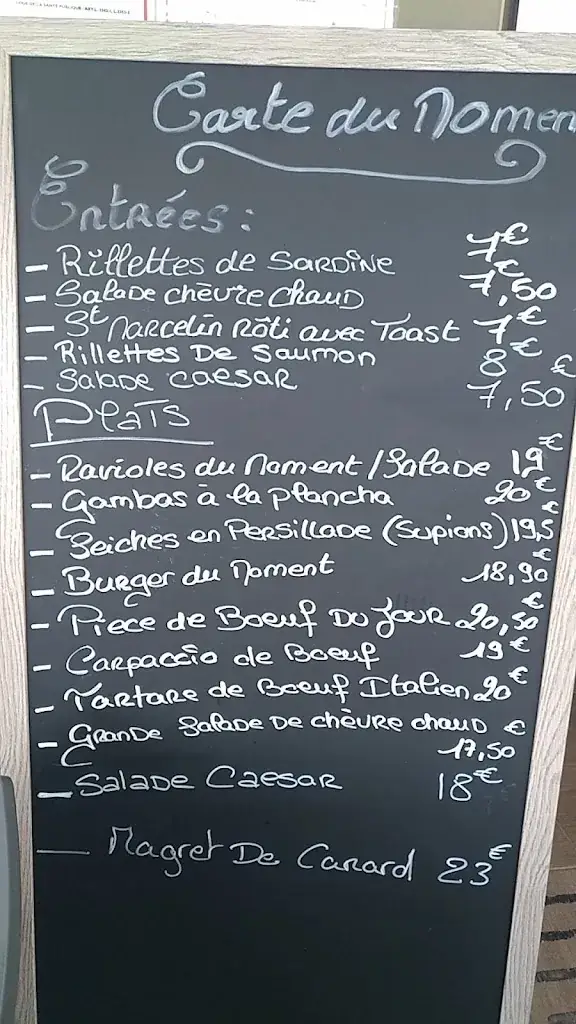 Carte du Momen
Entrées :
- Rillettes de Sardine 7€
- Salade chèvre Chaud 7,50€
- St Marcelin Rôti avec Toast 7€
- Rillettes De Saumon 8€
- Salade Caesar 7,50€
Plats
- Ravioles du Moment / Salade 19€
- Gambas à la plancha 20€
- Seiches en Persillade (Supions) 19,5€
- Burger du Moment 18,90€
- Piece de Boeuf Du Jour 20,50€
- Carpaccio de Boeuf 19€
- Tartare de Boeuf Italien 20€
- Grande Salade De chèvre chaud €
17,50
- Salade Caesar 18€
- Magret De Canard 23€